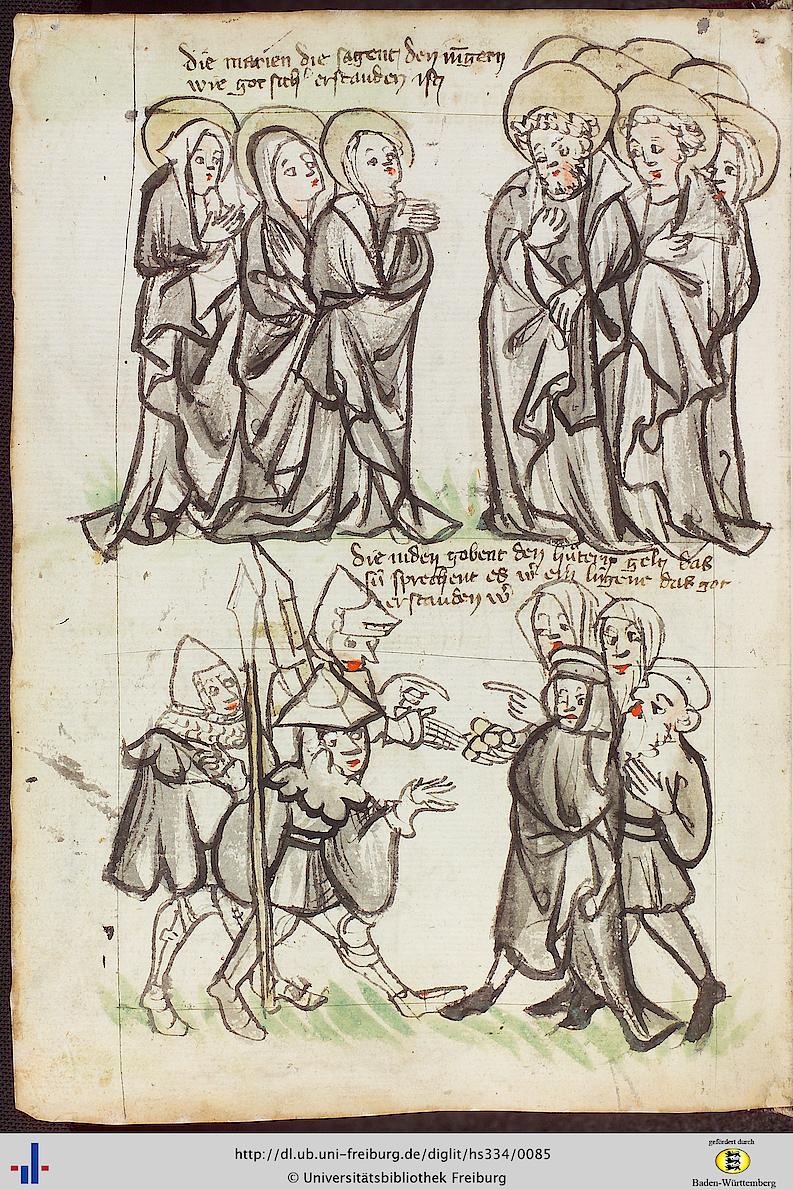 die marien die sagent den iu̅gern
wie got sich erstanden ist
die iuden gobent den hütern gelt das
sü sprechent es wer ein lugene das got
erstanden wer
http://dl.ub.uni-freiburg.de/diglit/hs334/0085
© Universitätsbibliothek Freiburg
gefördert durch
Baden-Württemberg